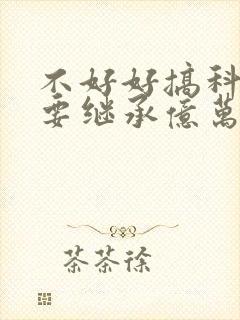 不好好搞科
要继承億萬
茶茶徐